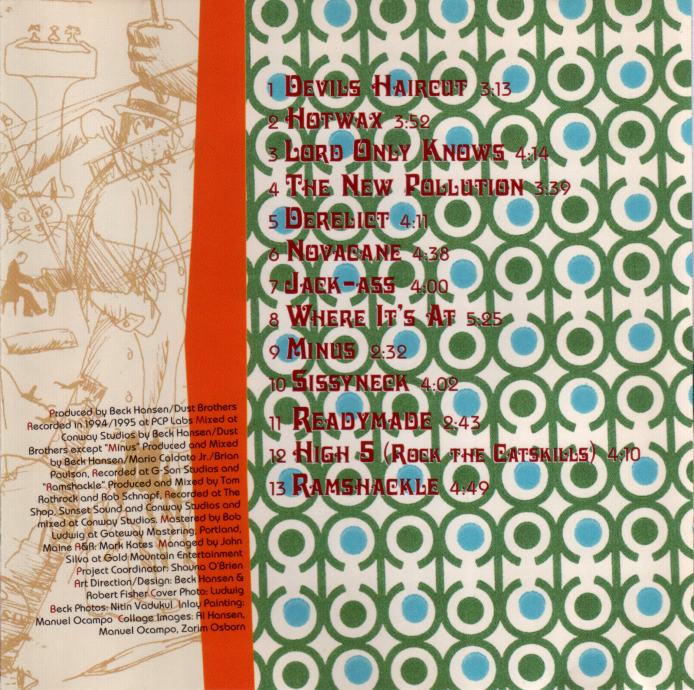 1 Devils Haircut 3:13
2 Hotwax 3:52
3 Lord Only Knows 4:14
4 The New Pollution 3:39
5 Derelict 4:11
6 Novacane 4:38
7 Jack-ass 4:00
8 Where It's At 5:25
9 Minus 2:32
10 Sissyneck 4:02
11 Readymade 2:43
12 High 5 (Rock the Catskills) 4:10
13 Ramshackle 4:49
Produced by Beck Hansen/Dust Brothers
Recorded in 1994/1995 at PCP Labs Mixed at
Conway Studios by Beck Hansen/Dust
Brothers except "Minus" Produced and Mixed
by Beck Hansen/Mario Caldato Jr./Brian
Paulson, Recorded at G-Son Studios and
"Ramshackle" Produced and Mixed by Tom
Rothrock and Rob Schnapf, Recorded at The
Shop, Sunset Sound and Conway Studios and
mixed at Conway Studios. Mastered by Bob
Ludwig at Gateway Mastering, Portland,
Maine A&R: Mark Kates Managed by John
Silva at Gold Mountain Entertainment
Project Coordinator: Shauna O'Brien
Art Direction/Design: Beck Hansen &
Robert Fisher Cover Photo: Ludwig
Beck Photos: Nitin Vadukul Inlay Painting:
Manuel Ocampo Collage Images: Al Hansen,
Manuel Ocampo, Zarim Osborn